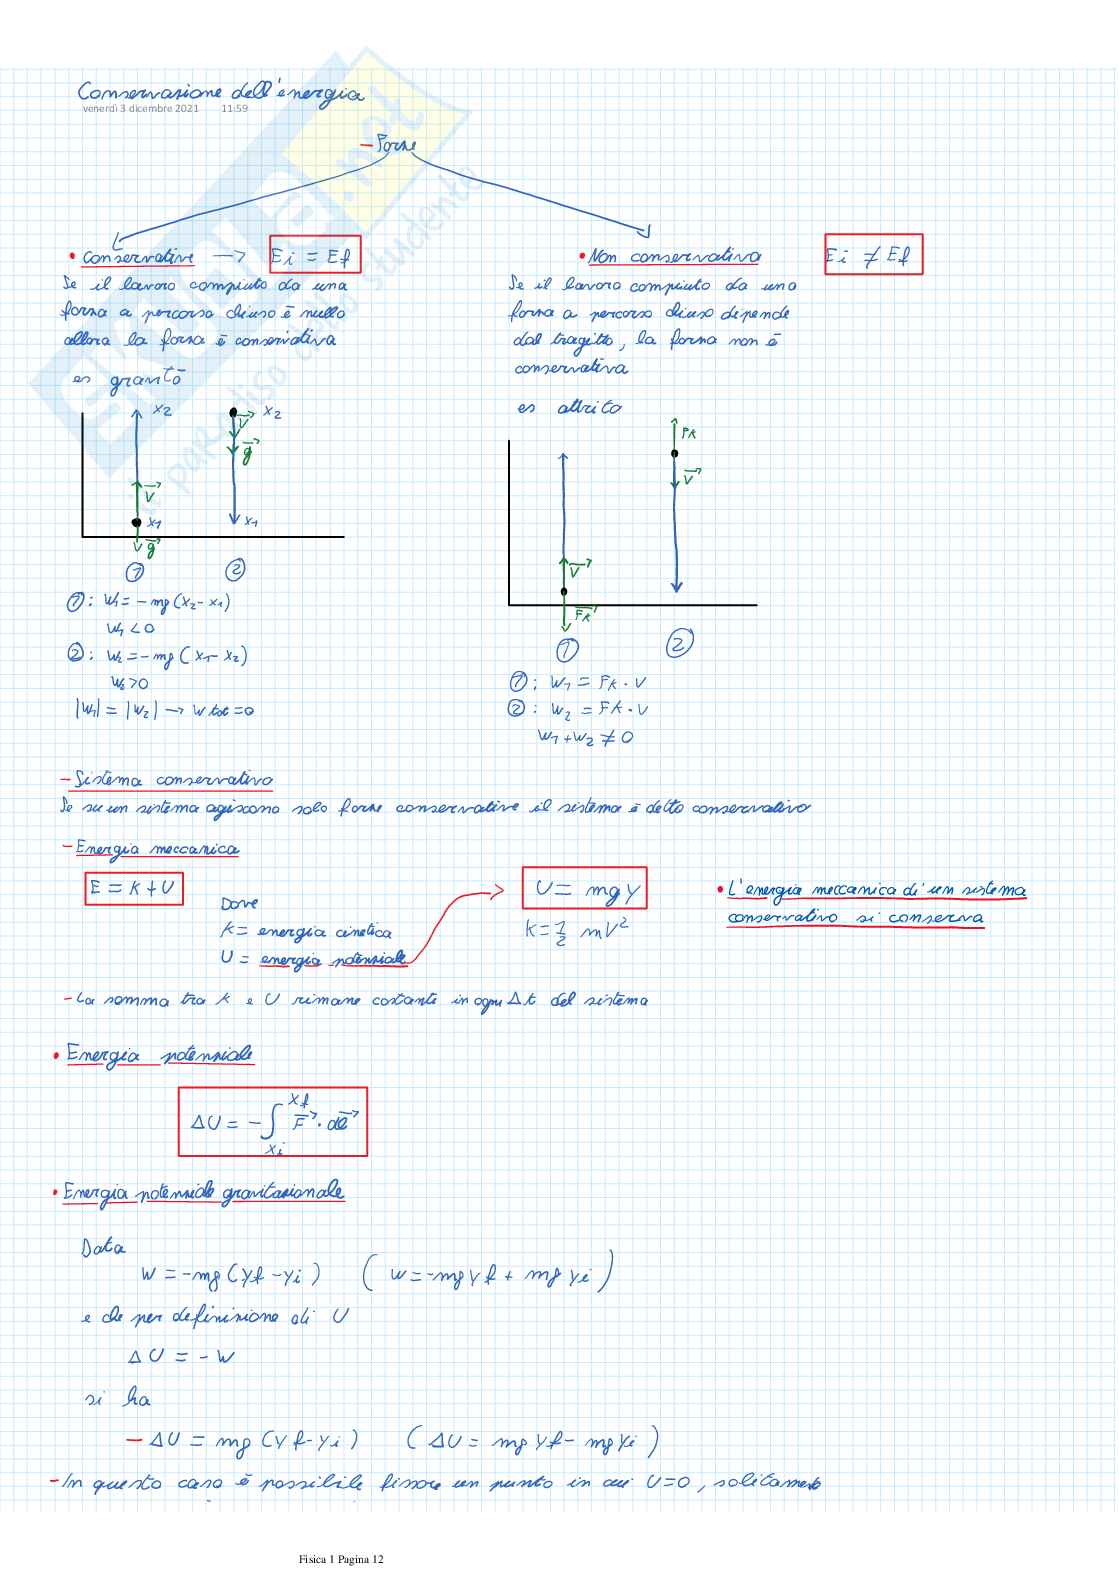 Conservazione dell'energia
venerdì 3 dicembre 2021 11:59
- Forze
• Conservative → Ei = Ef
Se il lavoro compiuto da una
forza a percorso chiuso è nullo
allora la forza è conservativa
es gravità
x2
x2
V
g
V
x1
x1
g
1
2
1: W1 = -mg(x2 - x1)
W1 < 0
2: W2 = -mg(x1 - x2)
W2 > 0
|W1| = |W2| → W tot = 0
• Non conservativa Ei ≠ Ef
Se il lavoro compiuto da una
forza a percorso chiuso depende
dal tragitto, la forza non è
conservativa
es attrito
FK
V
V
FK
1
2
1: W1 = FK · V
2: W2 = FK · V
W1 + W2 ≠ 0
- Sistema conservativo
Se su un sistema agiscono solo forze conservative il sistema è detto conservativo
- Energia meccanica
E = K + U
Dove
K = energia cinetica
U = energia potenziale
U = mgy
K = 1/2 mV²
• L'energia meccanica di un sistema
conservativo si conserva
- La somma tra K e U rimane costante in ogni Δt del sistema
• Energia potenziale
ΔU = - ∫ xi xf F · dl
• Energia potenziale gravitazionale
Data
W = -mg(yf - yi) (W = -mgyf + mgyi)
e che per definizione di U
ΔU = -W
si ha
- ΔU = mg(yf - yi) (ΔU = mgyf - mgyi)
- In questo caso è possibile fissare un punto in cui U=0, solitamente
Fisica 1 Pagina 12
SKUOLA.net
il paradiso dello studente